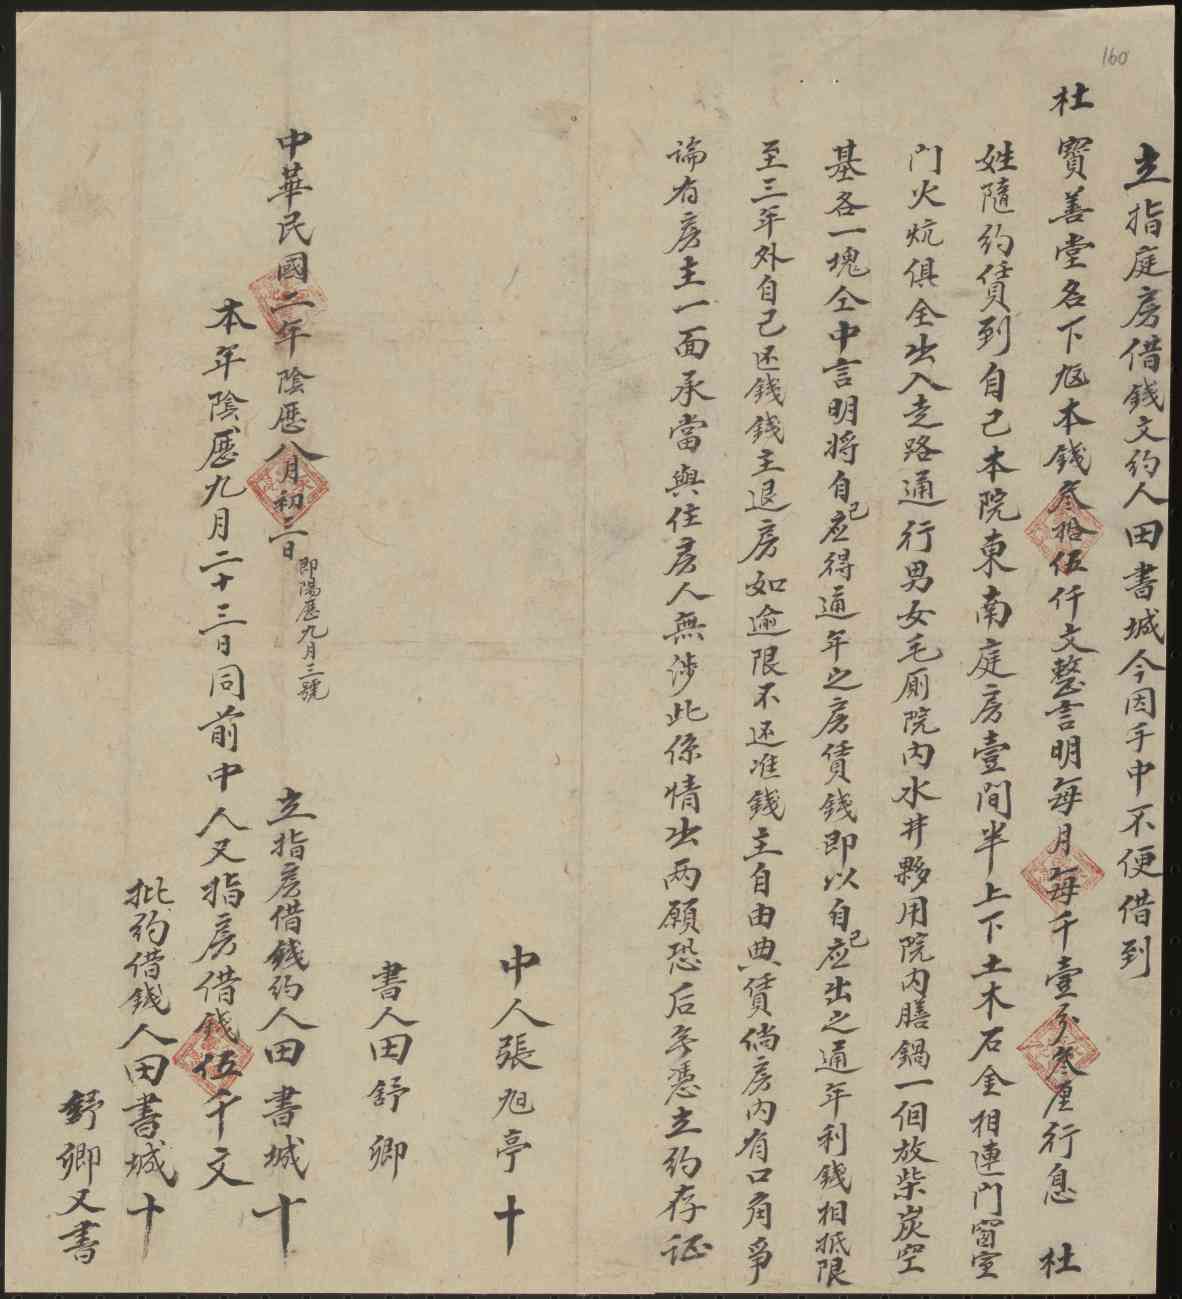 160
立指庭房借錢文約人田書城今因手中不便借到
杜寶善堂名下短本錢叁拾伍仟文整言明每月每千壹分叁厘行息 杜
姓隨約賃到自己本院東南庭房壹間半上下土木石金相連門窗室
門火炕俱全出入走路通行男女毛廁院內水井夥用院內膳鍋一個放柴炭空
基各一塊仝中言明將自己应得通年之房賃錢即以自己应出之通年利錢相抵限
至三年外自己还錢錢主退房如逾限不还准錢主自由典賃倘房內有口角爭
論有房主一面承當與住房人無涉此係情出两願恐后無憑立約存证
中人張旭亭十
書人田舒卿
中華民國二年陰厯八月初三日即陽厯九月三號
立指房借錢約人田書城十
本年陰厯九月二十三日同前中人又指房借錢伍千文
批約借錢人田書城十
舒卿又書